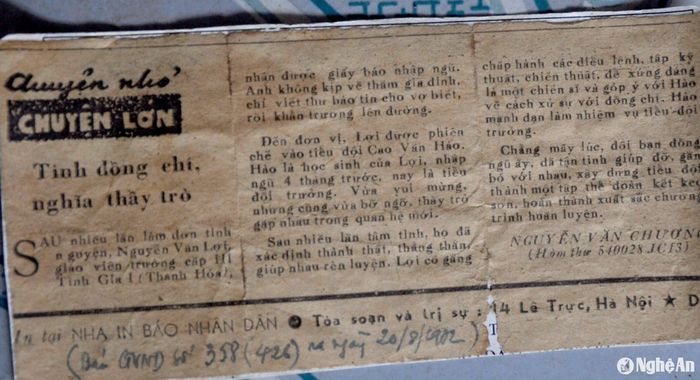 chuyện nhỏ
CHUYỆN LỚN
Tình đồng chí,
nghĩa thầy trò
SAU nhiều lần làm đơn tình
nguyện, Nguyễn Văn Lợi,
giáo viên trường cấp III
Tĩnh Gia I (Thanh Hóa),
nhận được giấy báo nhập ngũ.
Anh không kịp về thăm gia đình,
chỉ viết thư báo tin cho vợ biết,
rồi khẩn trương lên đường.
Đến đơn vị, Lợi được phiên
chế vào tiểu đội Cao Văn Hảo.
Hảo là học sinh của Lợi, nhập
ngũ 4 tháng trước, nay là tiểu
đội trưởng. Vừa vui mừng,
nhưng cũng vừa bỡ ngỡ, thầy trò
gặp nhau trong quan hệ mới.
Sau nhiều lần tâm tình, họ đã
xác định thành thật, thẳng thắn
giúp nhau rèn luyện. Lợi cố gắng
chấp hành các điều lệnh, tập kỹ
thuật, chiến thuật, để xứng đáng
là một chiến sĩ và góp ý với Hảo
về cách xử sự với đồng chí. Hảo
mạnh dạn làm nhiệm vụ tiểu-đội
trưởng.
Chẳng mấy lúc, đôi bạn đồng
ngũ ấy, đã tận tình giúp đỡ, gắn
bó với nhau, xây dựng tiểu đội
thành một tập thể đoàn kết keo
sơn, hoàn thành xuất sắc chương
trình huấn luyện.
NGUYỄN VĂN CHƯƠNG
(Hòm thư 540028 JC13)
In tại NHÀ IN BÁO NHÂN DÂN ● Tòa soạn và trị sự: 14 Lê Trực, Hà Nội ★ D
(Báo QVND số 358 (426) ra ngày 20/8/1972)
Nghệ An